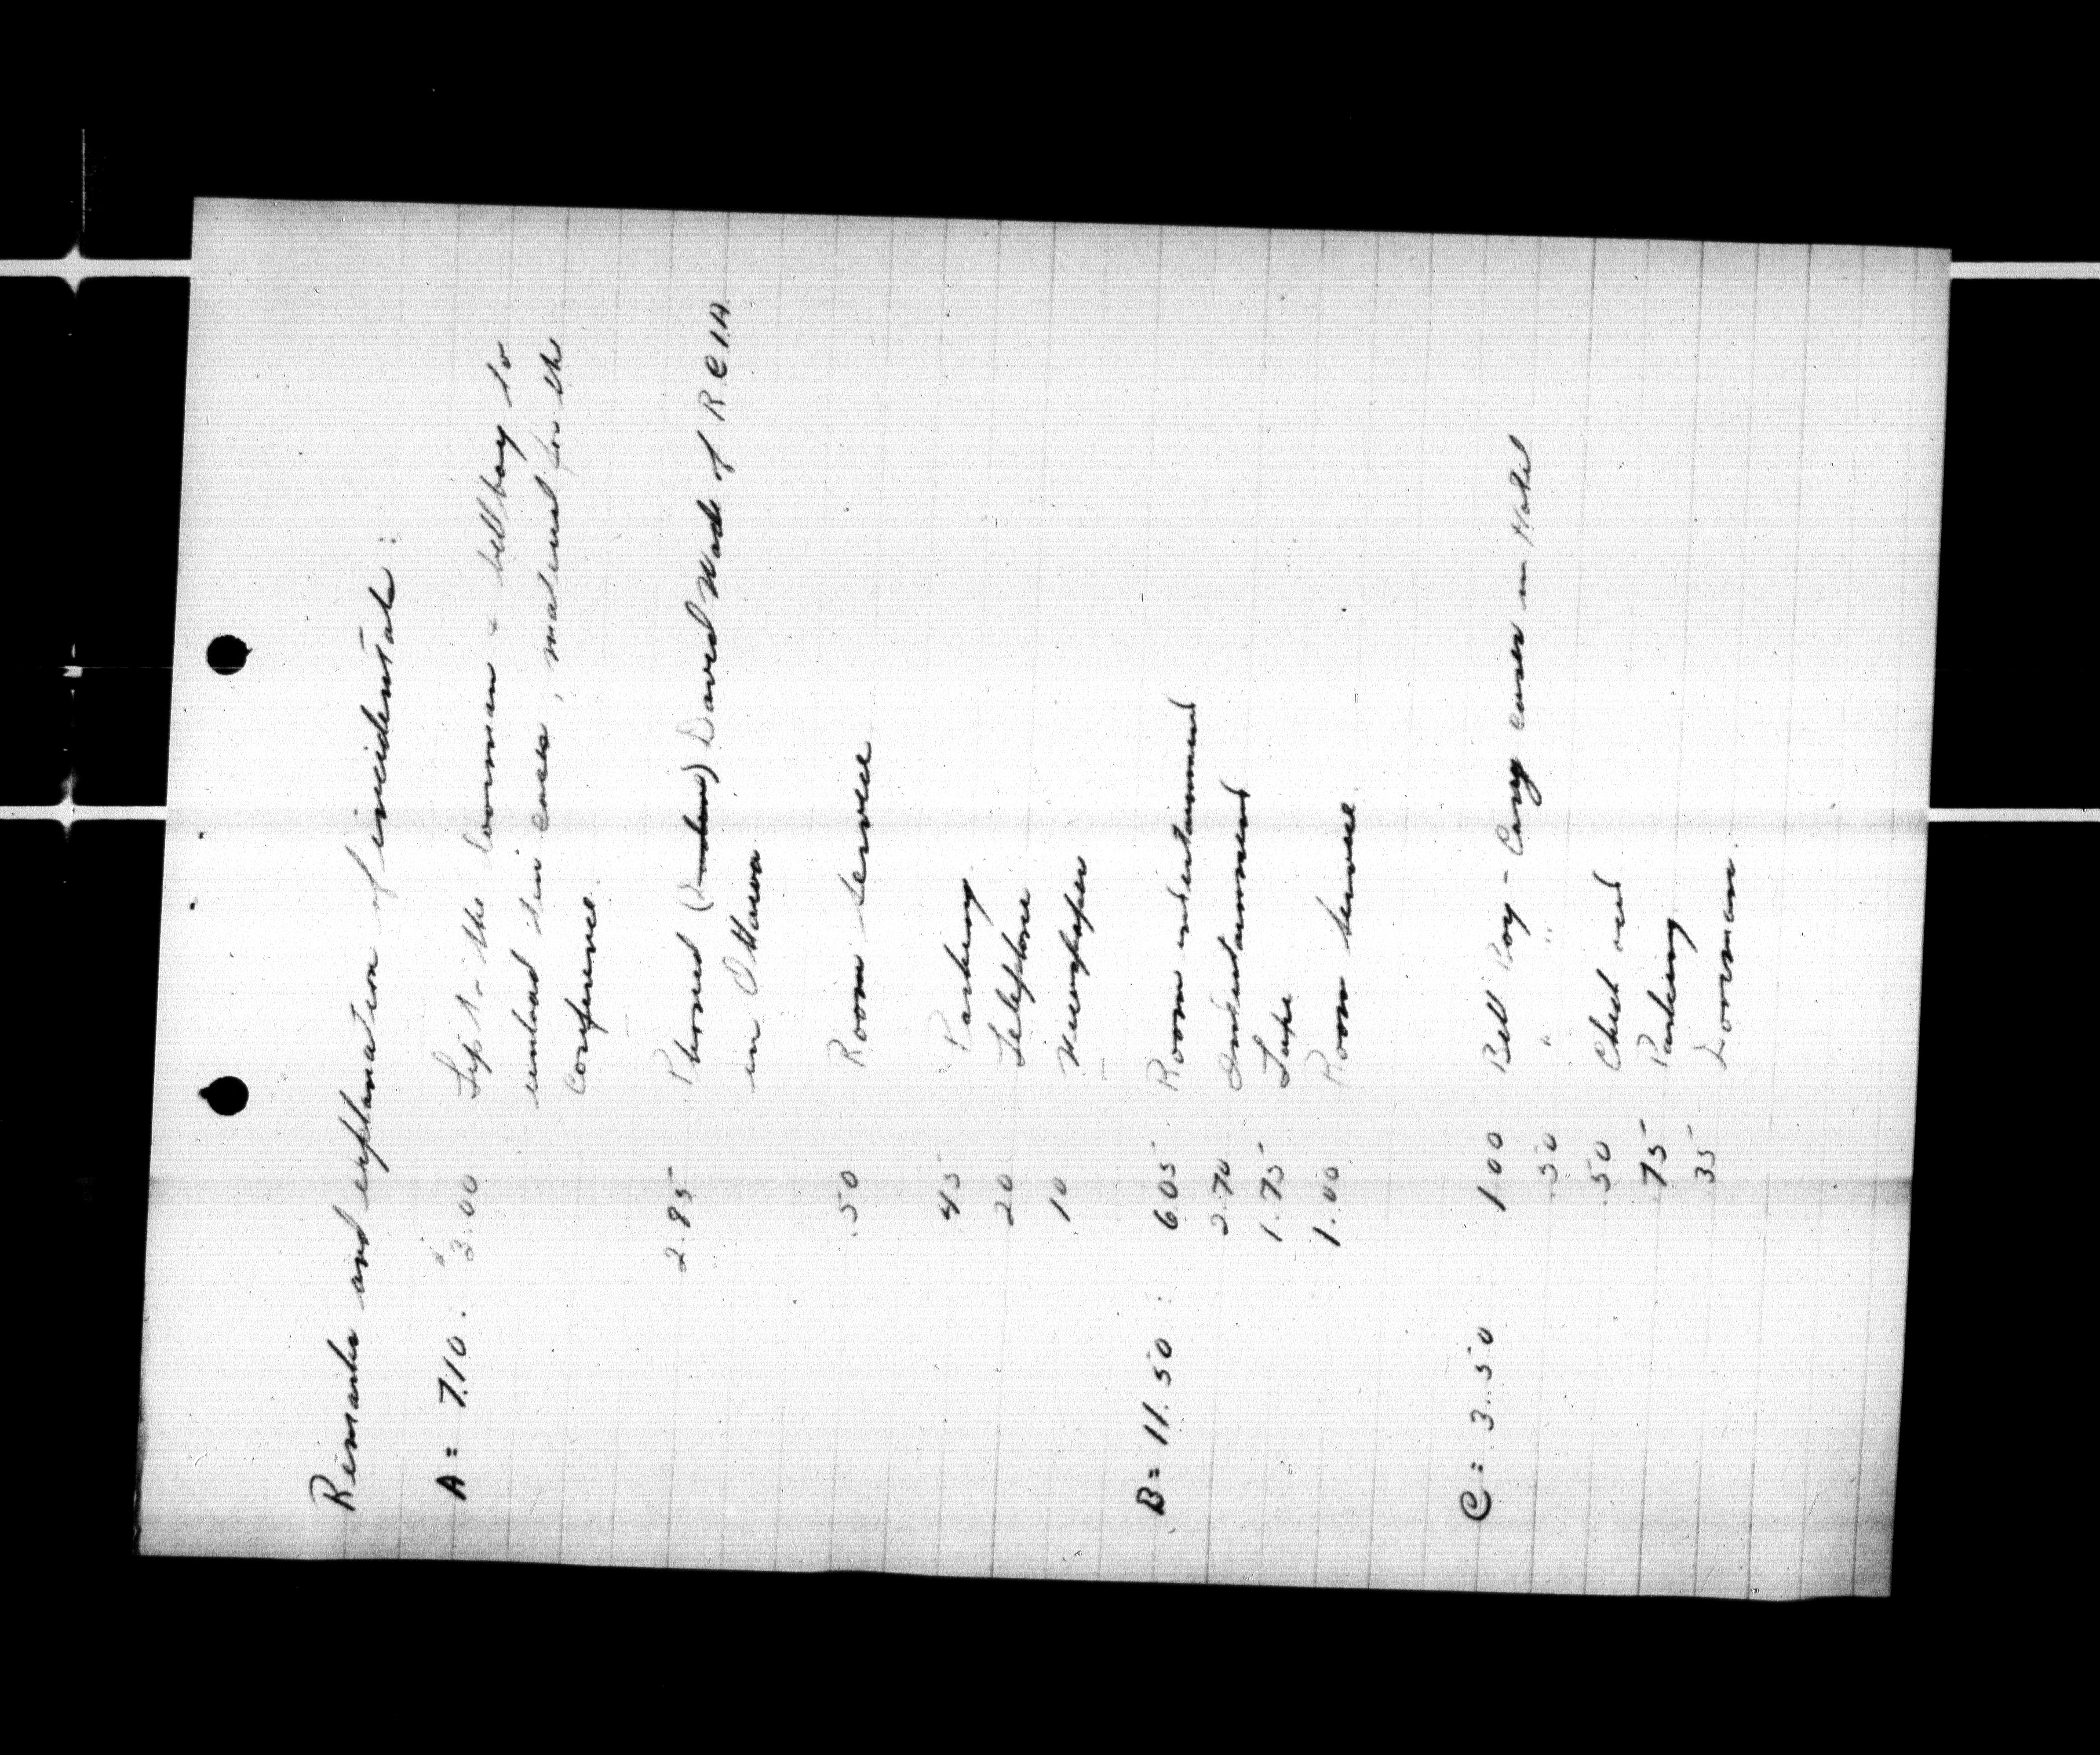 Remarks and explanation of incidentals :
A = 7.10 : $3.00 Tip to the doorman & bell boy to
unload ten cases, material for the
conference.
2.85 Phoned David Wade of R.C.I.A.
in Ottawa
.50 Room Service
45 Parking
20 Telephone
10 Newspaper
B = 11.50 : 6.05 Room entertainment
2.70 Entertainment
1.75 Tape
1.00 Room Service
C = 3.50 1.00 Bell Boy - Carry cases in Hotel
.50 " "
.50 Check out
.75 Parking
.35 Doorman.